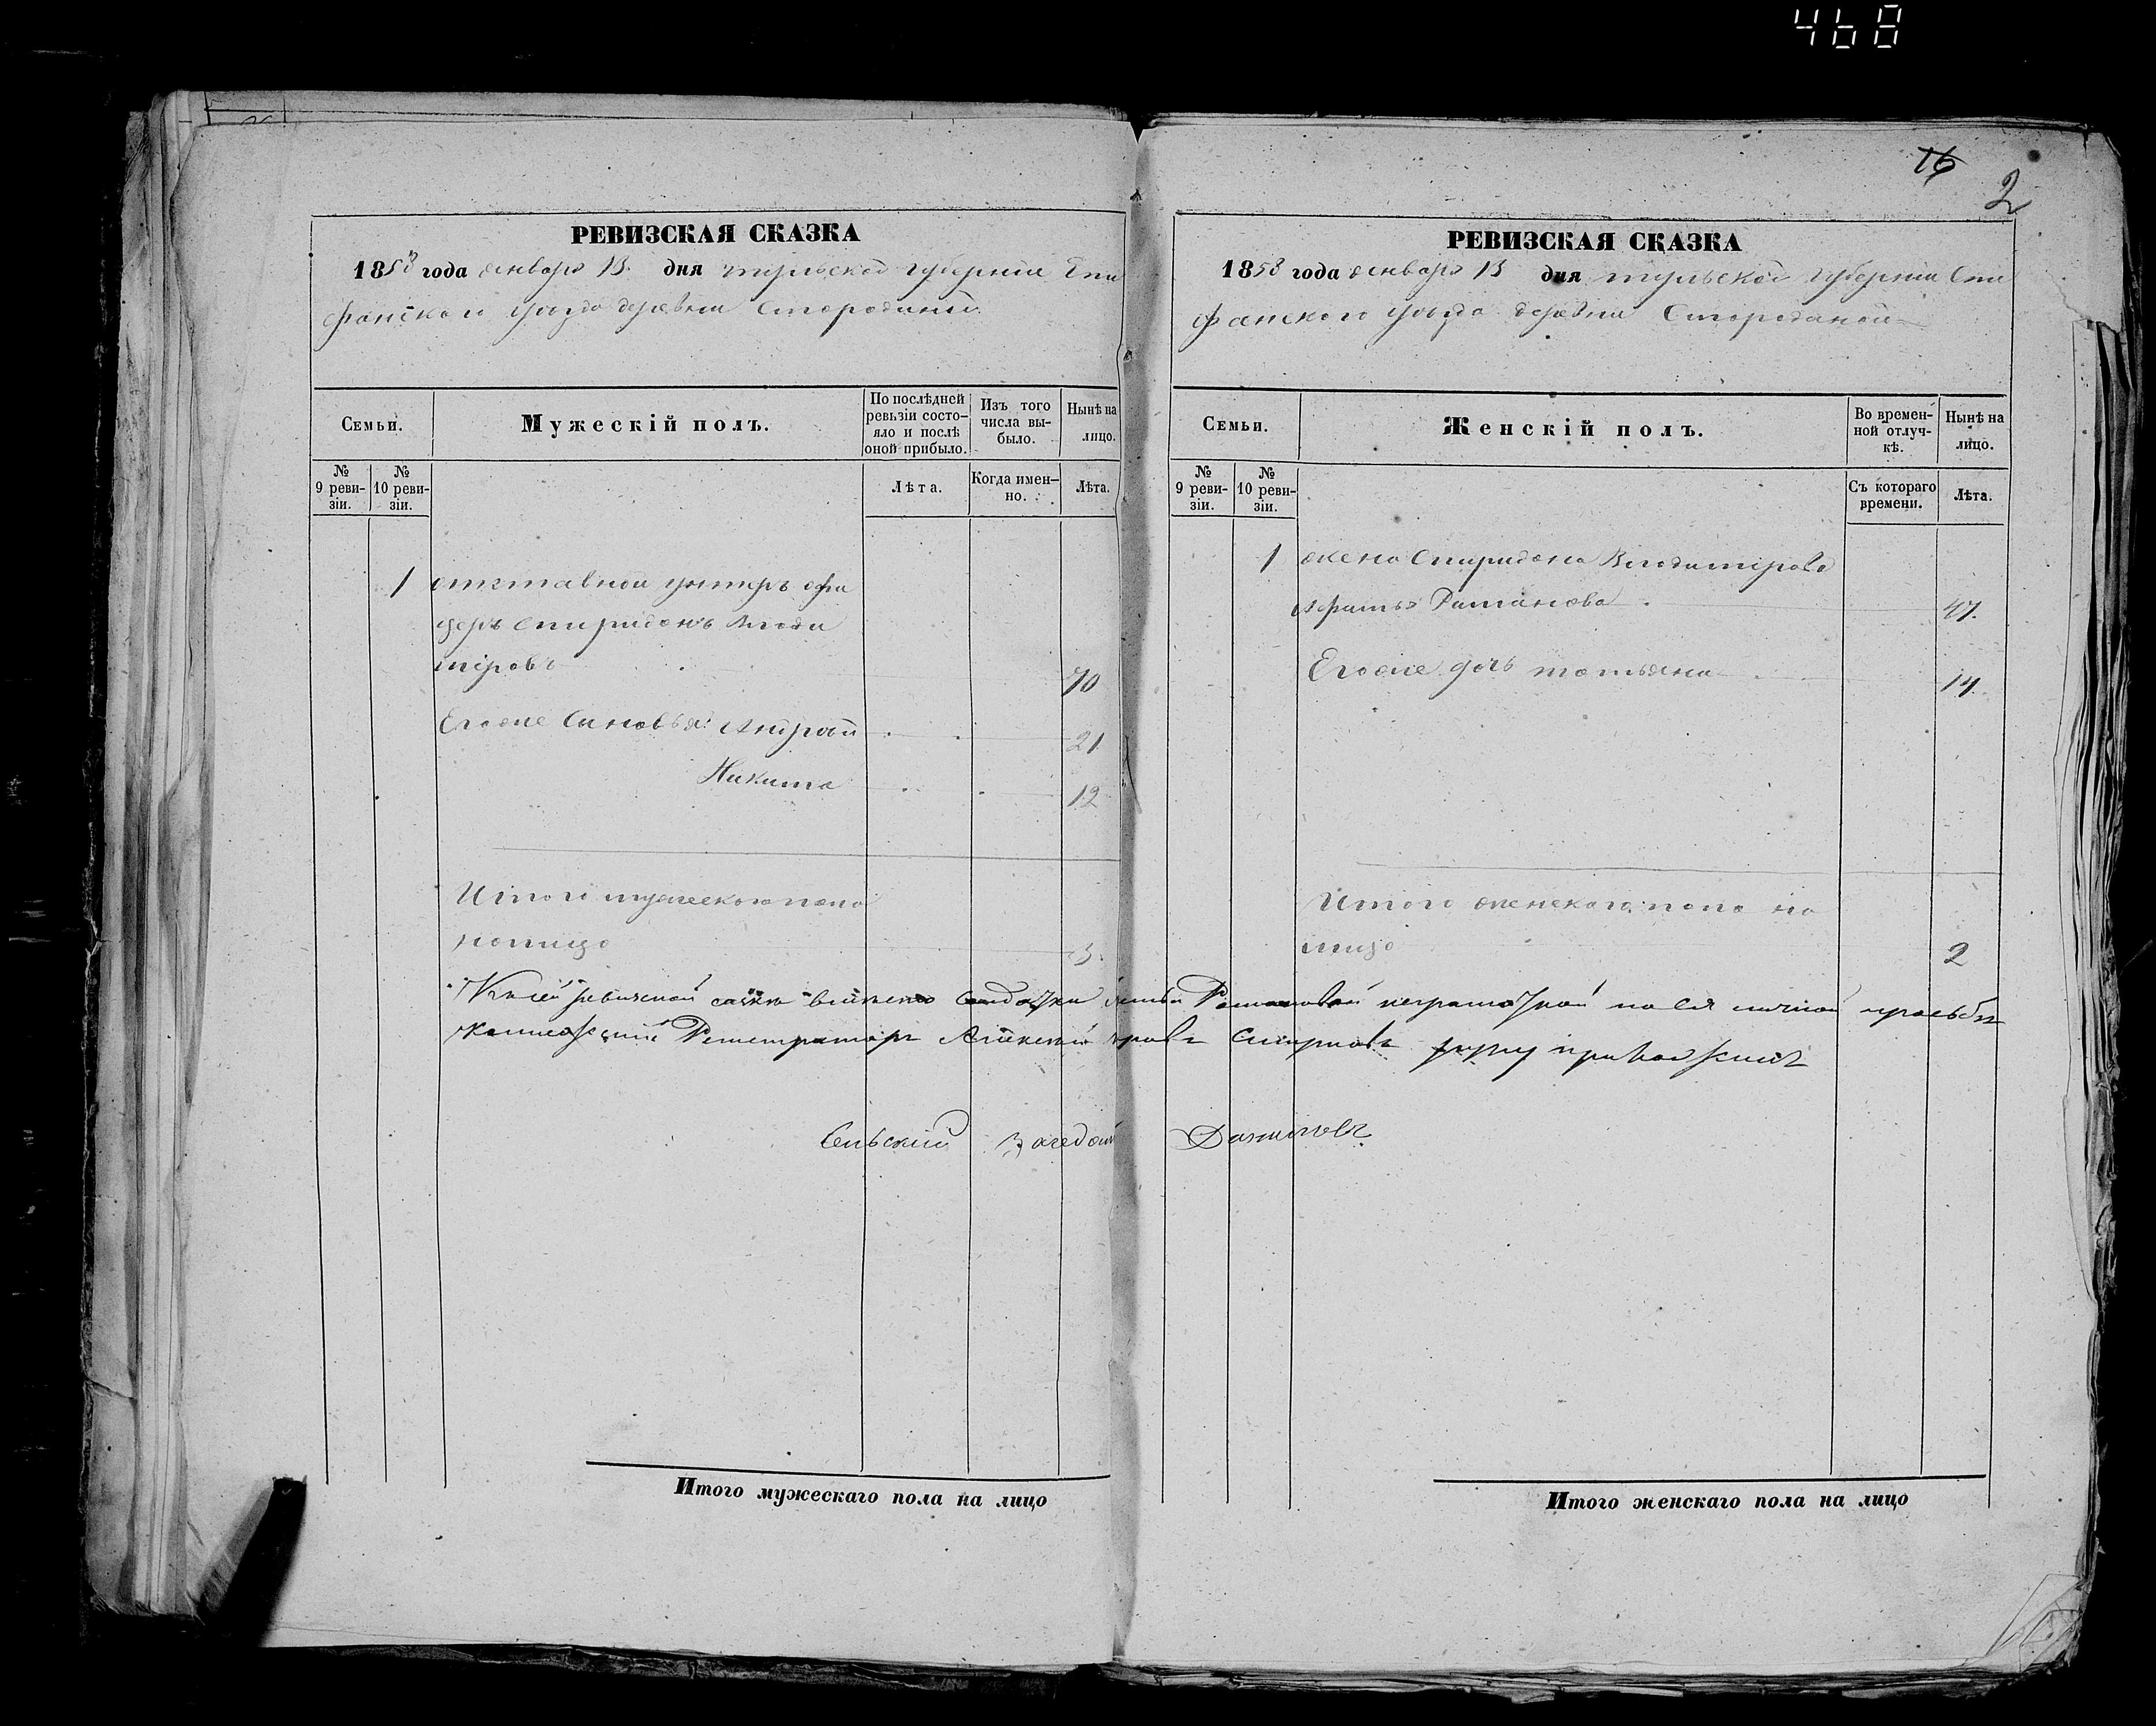 468
16
2
РЕВИЗСКАЯ СКАЗКА
1858 года января 13 дня тульской губернии Епи
фанского уезда деревни Смородиной
Семьи.
Мужескій полъ.
По послѣдней ревьзіи состо-
яло и послѣ
оной прибыло.
Изъ того
числа вы-
было.
Нынѣ на
лицо.
№
9 реви-
зіи.
№
10 реви-
зіи.
Лѣта.
Когда имен-
но.
Лѣта.
1 отставной унтеръ офи
церъ спиридонъ влади
міровъ 70
Егоже Сыновья: Андрей 21
Никита 12
Итого мужескаго пола
на лицо 3
Итого мужескаго пола на лицо
РЕВИЗСКАЯ СКАЗКА
1858 года января 13 дня тульской губернии Епи
фанского уезда деревни Смородиной
Семьи.
Женскій полъ.
Во времен-
ной отлуч-
кѣ.
Нынѣ на
лицо.
№
9 реви-
зіи.
№
10 реви-
зіи.
Съ котораго
времени.
Лѣта.
1 жена Спиридона Владимірова
Романова 47.
Егоже дочь татьяна 14.
Итого женскаго пола на
лицо 2
Къ сей ревизской сказке вместо Солдатки Романовой неграмотной по Ея личной просьбе
Коллежский Регистраторъ Смирновъ руку приложилъ
Сельский Заседат
Итого женскаго пола на лицо